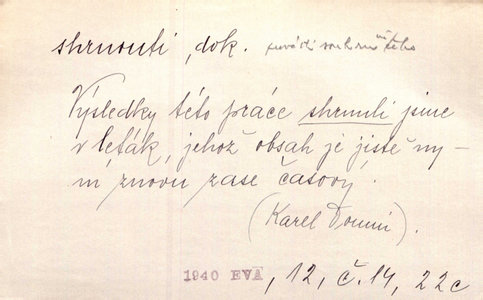 shrnouti, dok.
Výsledky této práce shrnuli jsme
v leták, jehož obsah je jistě ny-
ní znovu zase časový.
(Karel Domin).
1940 EVA, 12, č. 14, 22c